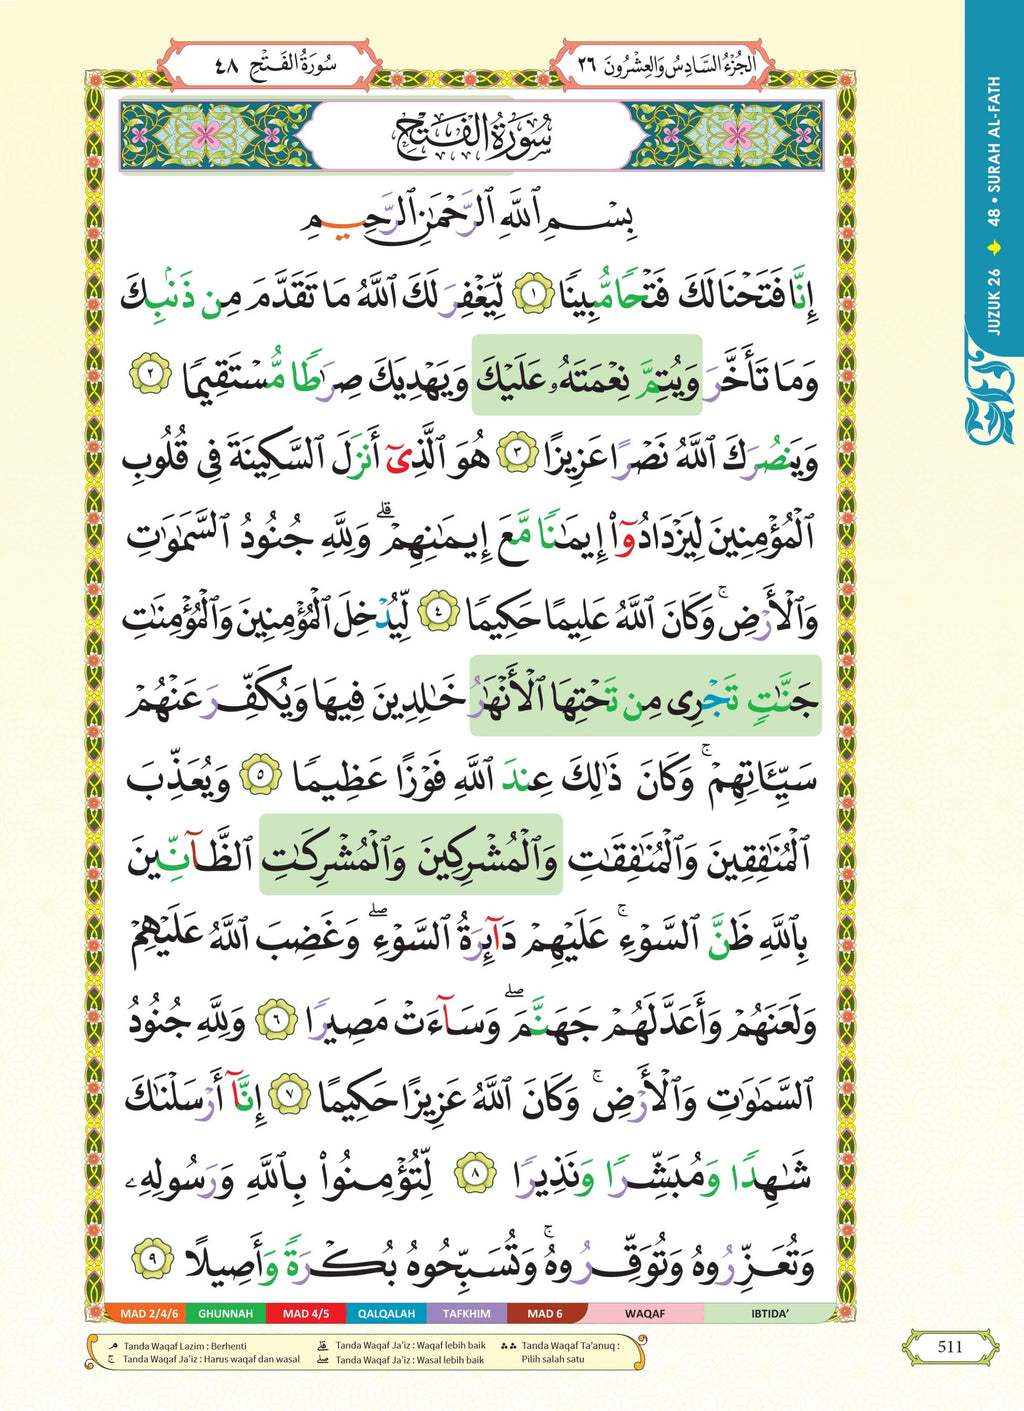 سُورَةُ الْفَتْحِ ٤٨
الجُزْءُ السَّادِسُ وَالعِشْرُونَ ٢٦
سُورَةُ الْفَتْحِ
بِسْمِ ٱللَّهِ ٱلرَّحْمَٰنِ ٱلرَّحِيمِ
إِنَّا فَتَحْنَا لَكَ فَتْحًا مُّبِينًا ١ لِّيَغْفِرَ لَكَ ٱللَّهُ مَا تَقَدَّمَ مِن ذَنۢبِكَ
وَمَا تَأَخَّرَ وَيُتِمَّ نِعْمَتَهُۥ عَلَيْكَ وَيَهْدِيَكَ صِرَٰطًا مُّسْتَقِيمًا ٢
وَيَنصُرَكَ ٱللَّهُ نَصْرًا عَزِيزًا ٣ هُوَ ٱلَّذِىٓ أَنزَلَ ٱلسَّكِينَةَ فِى قُلُوبِ
ٱلْمُؤْمِنِينَ لِيَزْدَادُوٓا۟ إِيمَٰنًا مَّعَ إِيمَٰنِهِمْ ۗ وَلِلَّهِ جُنُودُ ٱلسَّمَٰوَٰتِ
وَٱلْأَرْضِ ۚ وَكَانَ ٱللَّهُ عَلِيمًا حَكِيمًا ٤ لِّيُدْخِلَ ٱلْمُؤْمِنِينَ وَٱلْمُؤْمِنَٰتِ
جَنَّٰتٍ تَجْرِى مِن تَحْتِهَا ٱلْأَنْهَٰرُ خَٰلِدِينَ فِيهَا وَيُكَفِّرَ عَنْهُمْ
سَيِّـَٔاتِهِمْ ۚ وَكَانَ ذَٰلِكَ عِندَ ٱللَّهِ فَوْزًا عَظِيمًا ٥ وَيُعَذِّبَ
ٱلْمُنَٰفِقِينَ وَٱلْمُنَٰفِقَٰتِ وَٱلْمُشْرِكِينَ وَٱلْمُشْرِكَٰتِ ٱلظَّآنِّينَ
بِٱللَّهِ ظَنَّ ٱلسَّوْءِ ۚ عَلَيْهِمْ دَآئِرَةُ ٱلسَّوْءِ ۖ وَغَضِبَ ٱللَّهُ عَلَيْهِمْ
وَلَعَنَهُمْ وَأَعَدَّ لَهُمْ جَهَنَّمَ ۖ وَسَآءَتْ مَصِيرًا ٦ وَلِلَّهِ جُنُودُ
ٱلسَّمَٰوَٰتِ وَٱلْأَرْضِ ۚ وَكَانَ ٱللَّهُ عَزِيزًا حَكِيمًا ٧ إِنَّآ أَرْسَلْنَٰكَ
شَٰهِدًا وَمُبَشِّرًا وَنَذِيرًا ٨ لِّتُؤْمِنُوا۟ بِٱللَّهِ وَرَسُولِهِۦ
وَتُعَزِّرُوهُ وَتُوَقِّرُوهُ ۚ وَتُسَبِّحُوهُ بُكْرَةً وَأَصِيلًا ٩
JUZUK 26 48 • SURAH AL-FATH
MAD 2/4/6 GHUNNAH MAD 4/5 QALQALAH TAFKHIM MAD 6 WAQAF IBTIDA’
م Tanda Waqaf Lazim : Berhenti قلى Tanda Waqaf Ja’iz : Waqaf lebih baik ∴ ∴ Tanda Waqaf Ta’anuq :
ج Tanda Waqaf Ja’iz : Harus waqaf dan wasal صلى Tanda Waqaf Ja’iz : Wasal lebih baik Pilih salah satu
511